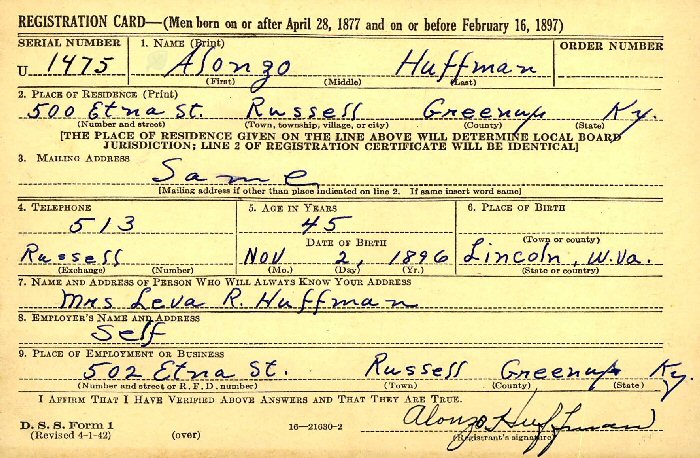 REGISTRATION CARD—(Men born on or after April 28, 1877 and on or before February 16, 1897)
SERIAL NUMBER 1. NAME (Print) ORDER NUMBER
U 1475 Alonzo Huffman
(First) (Middle) (Last)
2. PLACE OF RESIDENCE (Print)
500 Etna St. Russell Greenup Ky.
(Number and street) (Town, township, village, or city) (County) (State)
[THE PLACE OF RESIDENCE GIVEN ON THE LINE ABOVE WILL DETERMINE LOCAL BOARD
JURISDICTION; LINE 2 OF REGISTRATION CERTIFICATE WILL BE IDENTICAL]
3. MAILING ADDRESS
Same
[Mailing address if other than place indicated on line 2. If same insert word same]
4. TELEPHONE 5. AGE IN YEARS 6. PLACE OF BIRTH
513 45
DATE OF BIRTH (Town or county)
Russell Nov 2, 1896 Lincoln, W.Va.
(Exchange) (Number) (Mo.) (Day) (Yr.) (State or country)
7. NAME AND ADDRESS OF PERSON WHO WILL ALWAYS KNOW YOUR ADDRESS
Mrs Leva R. Huffman
8. EMPLOYER'S NAME AND ADDRESS
Self
9. PLACE OF EMPLOYMENT OR BUSINESS
502 Etna St. Russell Greenup Ky.
(Number and street or R. F. D. number) (Town) (County) (State)
I AFFIRM THAT I HAVE VERIFIED ABOVE ANSWERS AND THAT THEY ARE TRUE.
D. S. S. Form 1 Alonzo Huffman
(Revised 4-1-42) (over) 16—21630-2 (Registrant's signature)